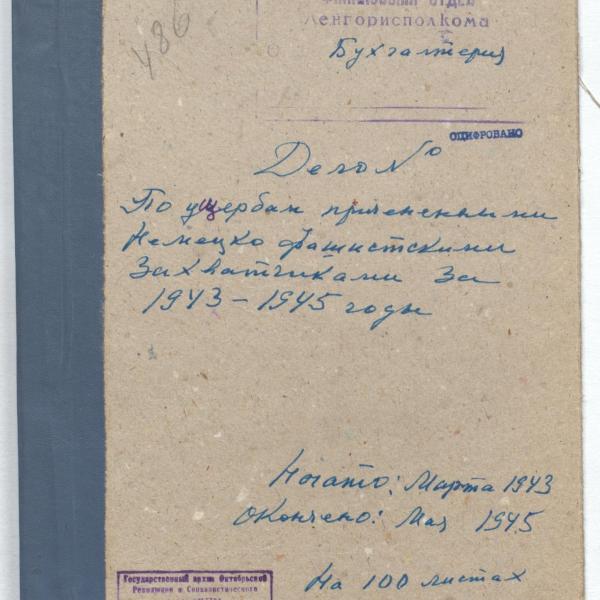 486
ФИНАНСОВЫЙ ОТДЕЛ
Ленгорисполкома
Бухгалтерия
ОЦИФРОВАНО
Дело №
По ущербам причененными
Немецко фашистскими
Захватчиками за
1943-1945 годы
Начато: Марта 1943
Окончено: Мая 1945
На 100 листах
Государственный архив Октябрьской
Революции и Социалистического